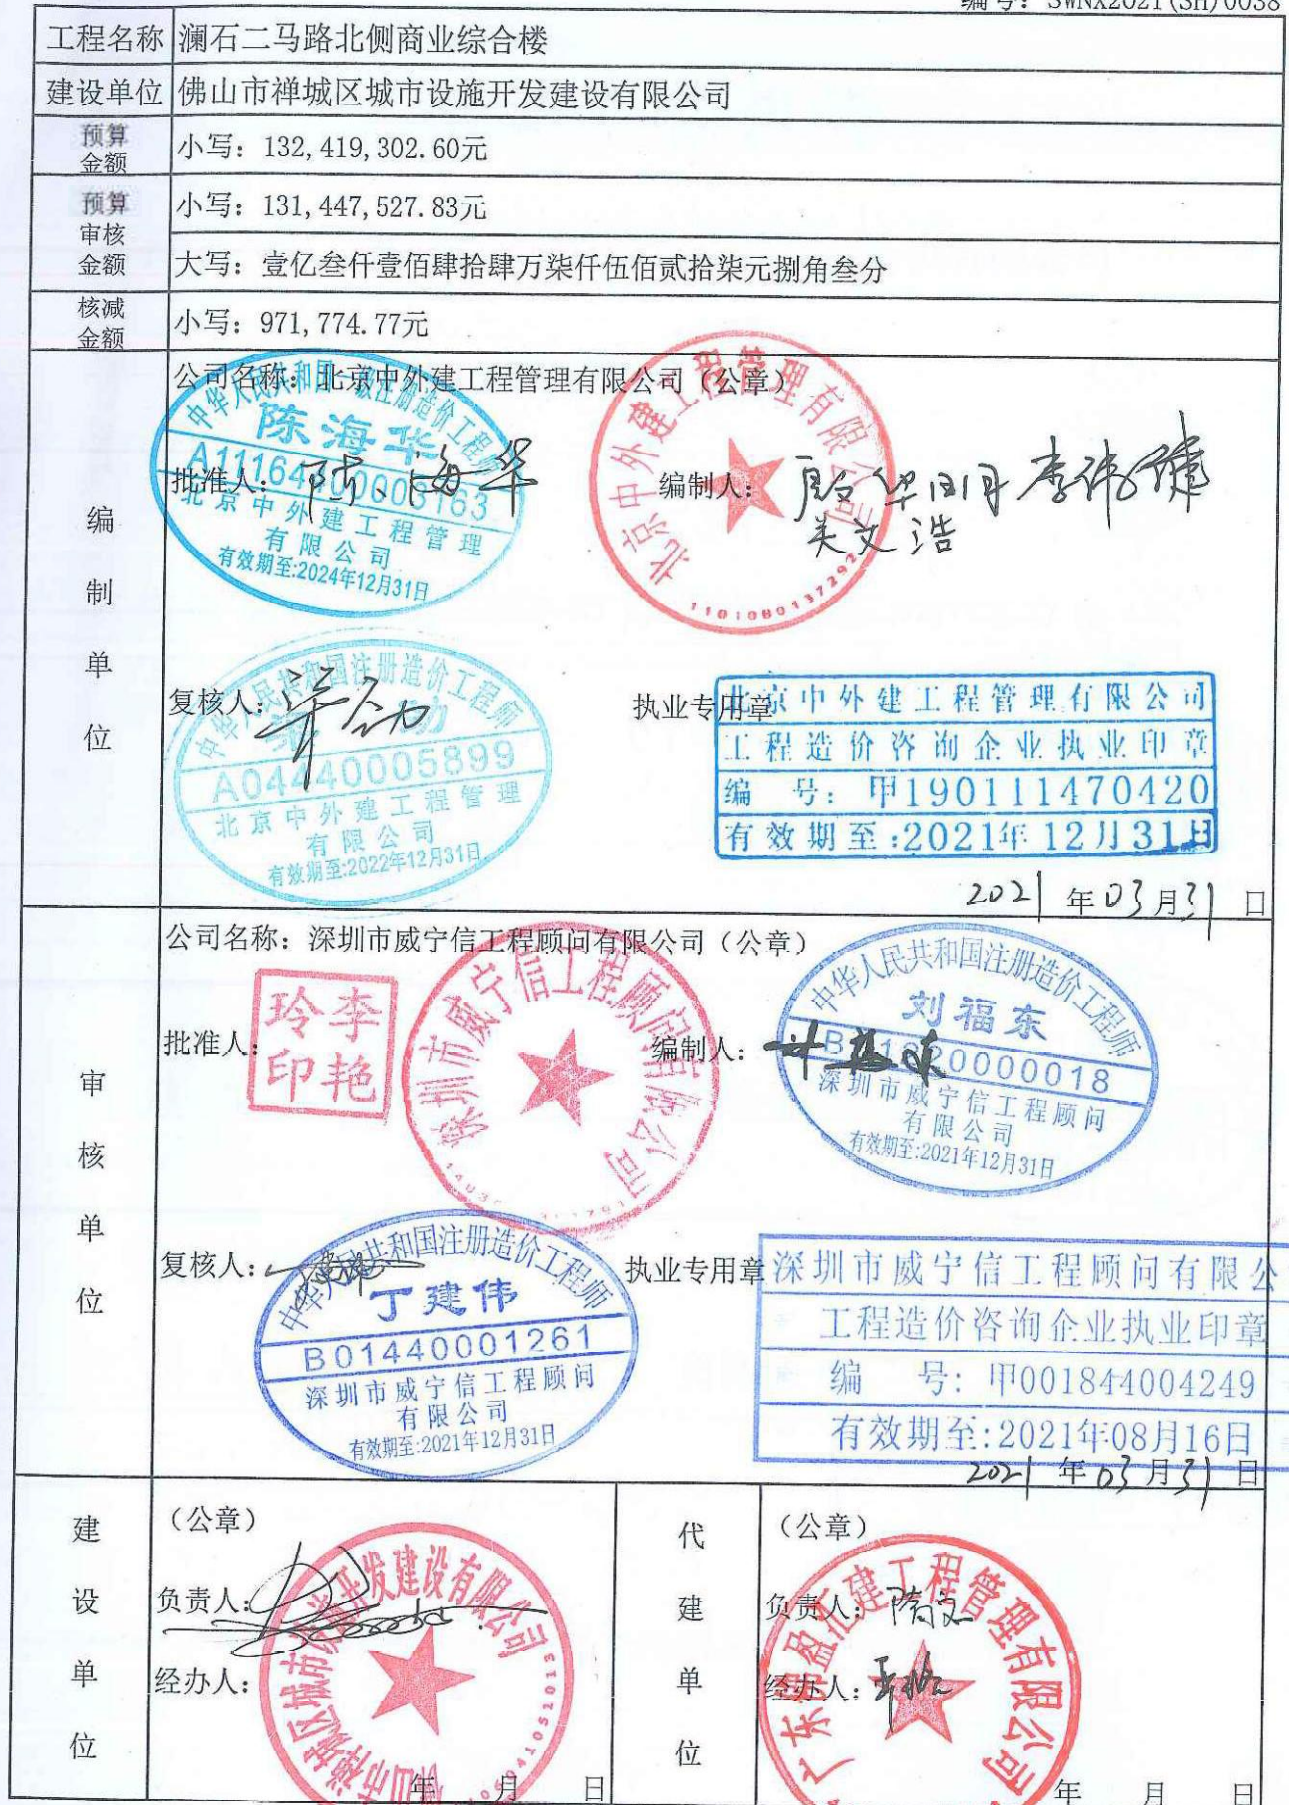 编号：SWNX2021(SH)0038
工程名称 澜石二马路北侧商业综合楼
建设单位 佛山市禅城区城市设施开发建设有限公司
预算金额 小写：132,419,302.60元
预算审核金额 小写：131,447,527.83元
大写：壹亿叁仟壹佰肆拾肆万柒仟伍佰贰拾柒元捌角叁分
核减金额 小写：971,774.77元
编制单位
公司名称：北京中外建工程管理有限公司（公章）
中华人民共和国一级注册造价工程师
陈海华
北京中外建工程管理
有限公司
有效期至:2024年12月31日
北京中外建工程管理有限公司
批准人：陈海华
编制人：
吴文浩
复核人：
中华人民共和国注册造价工程师
A04440005899
北京中外建工程管理
有限公司
有效期至:2022年12月31日
执业专用章
北京中外建工程管理有限公司
工程造价咨询企业执业印章
编 号：甲190111470420
有效期至:2021年12月31日
2021年03月31日
审核单位
公司名称：深圳市威宁信工程顾问有限公司（公章）
批准人：
李艳玲印
深圳市威宁信工程顾问有限公司
编制人：
中华人民共和国注册造价工程师
刘福东
深圳市威宁信工程顾问
有限公司
有效期至:2021年12月31日
复核人：
中华人民共和国注册造价工程师
丁建伟
B01440001261
深圳市威宁信工程顾问
有限公司
有效期至:2021年12月31日
执业专用章
深圳市威宁信工程顾问有限公
工程造价咨询企业执业印章
编 号：甲001844004249
有效期至:2021年08月16日
2021年03月31日
建设单位
（公章）
负责人：
经办人：
年 月 日
代建单位
（公章）
广东佛盈汇建工程管理有限公司
负责人：
经办人：
年 月 日